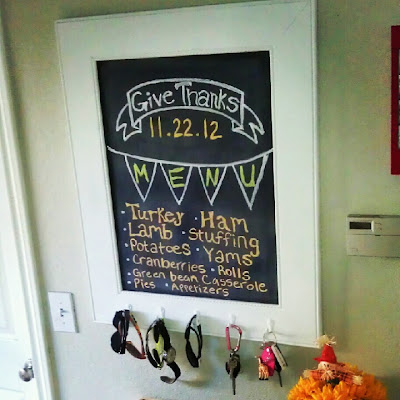 Give Thanks
11.22.12
MENU
· Turkey · Ham
· Lamb · Stuffing
· Potatoes · Yams
· Cranberries · Rolls
· Green bean Casserole
· Pies · Appetizers